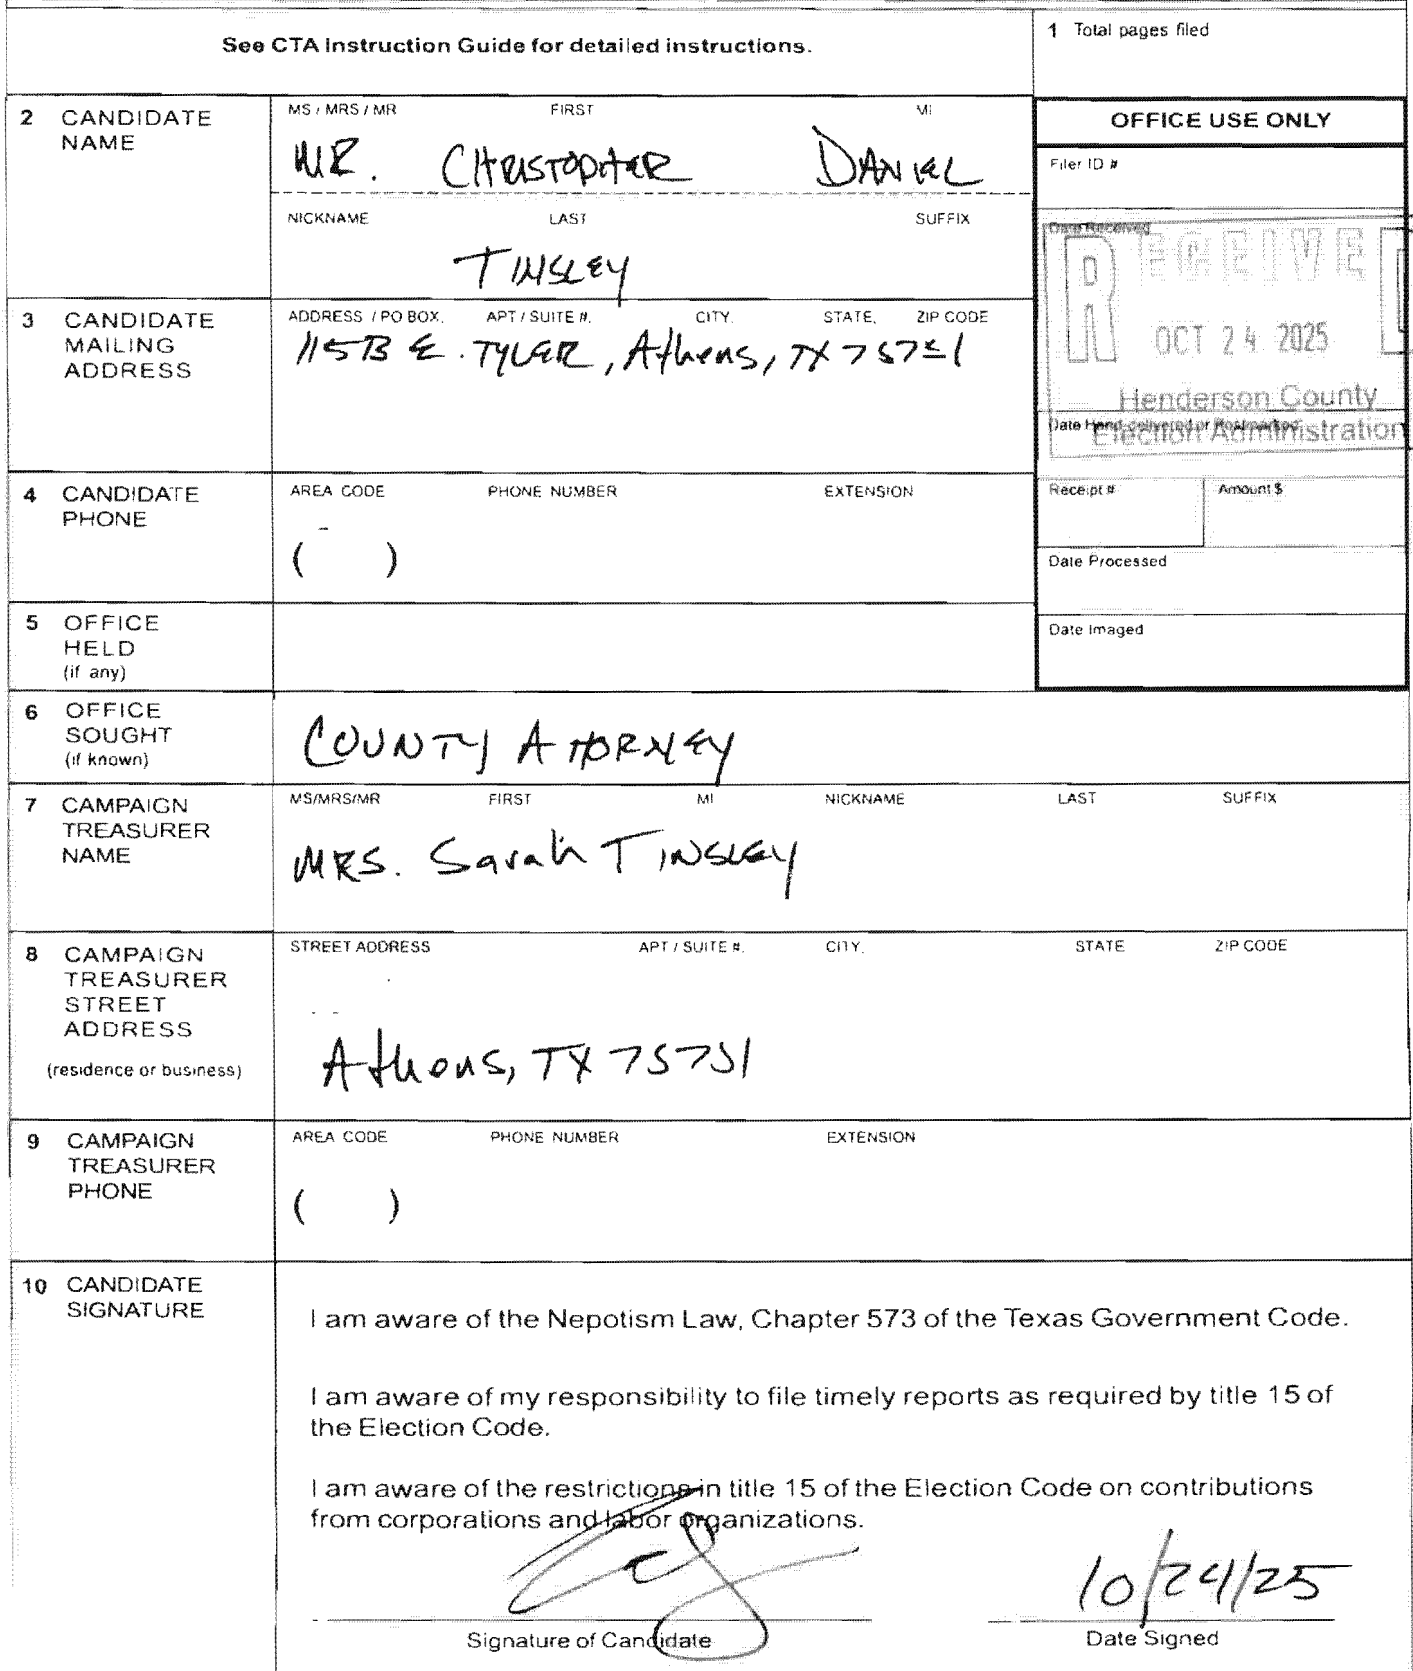 See CTA Instruction Guide for detailed instructions.
1 Total pages filed
2 CANDIDATE NAME
MS / MRS / MR FIRST MI
MR. CHRISTOPHER DANIEL
NICKNAME LAST SUFFIX
TINSLEY
OFFICE USE ONLY
Filer ID #
Date Received
RECEIVED
OCT 24 2025
Henderson County
Election Administration
Date Hand-delivered or Postmarked
Receipt # Amount $
Date Processed
Date Imaged
3 CANDIDATE MAILING ADDRESS
ADDRESS / PO BOX, APT / SUITE #, CITY, STATE, ZIP CODE
115B E. TYLER, Athens, TX 75751
4 CANDIDATE PHONE
AREA CODE PHONE NUMBER EXTENSION
( )
5 OFFICE HELD (if any)
6 OFFICE SOUGHT (if known)
COUNTY ATTORNEY
7 CAMPAIGN TREASURER NAME
MS/MRS/MR FIRST MI NICKNAME LAST SUFFIX
MRS. Sarah TINSLEY
8 CAMPAIGN TREASURER STREET ADDRESS
(residence or business)
STREET ADDRESS APT / SUITE #, CITY, STATE ZIP CODE
Athens, TX 75751
9 CAMPAIGN TREASURER PHONE
AREA CODE PHONE NUMBER EXTENSION
( )
10 CANDIDATE SIGNATURE
I am aware of the Nepotism Law, Chapter 573 of the Texas Government Code.
I am aware of my responsibility to file timely reports as required by title 15 of
the Election Code.
I am aware of the restrictions in title 15 of the Election Code on contributions
from corporations and labor organizations.
10/24/25
Signature of Candidate
Date Signed